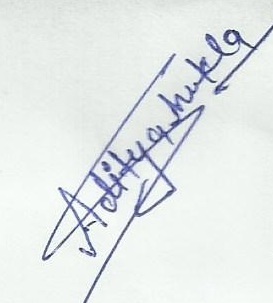 Aditya Shukla